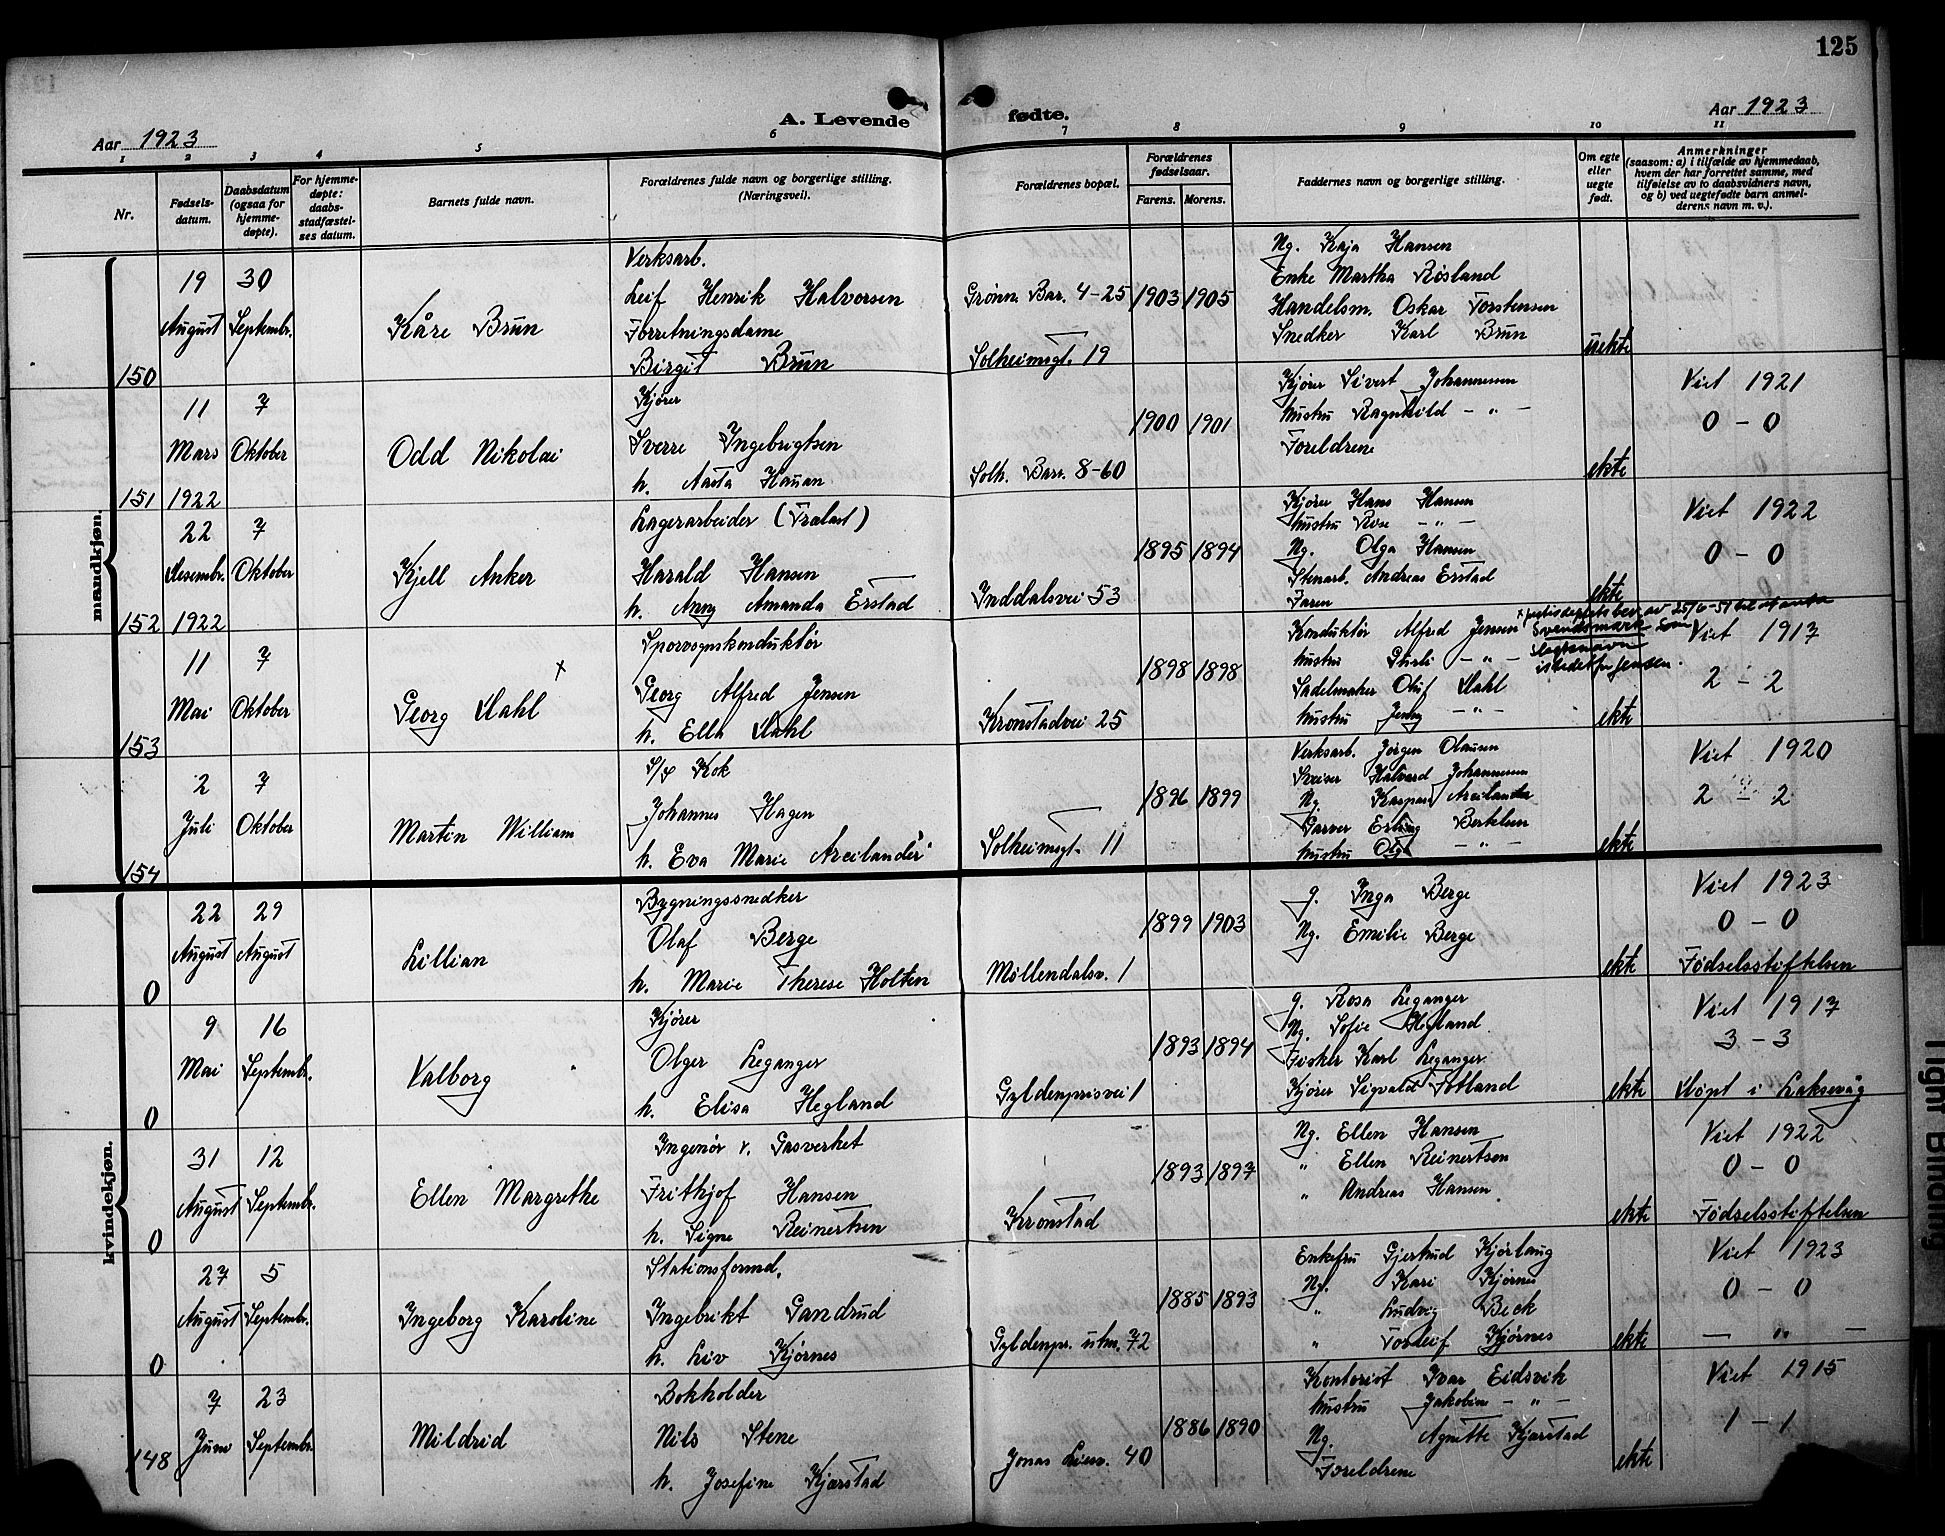 125
Aar 1923
A. Levende fødte.
Aar 1923
1 2 3 4 5 6 7 8 9 10 11
Nr.
Fødsels-
datum.
Daabsdatum
(ogsaa for
hjemme-
døpte).
For hjemme-
døpte:
daabs-
stadfæstel-
ses datum.
Barnets fulde navn.
Forældrenes fulde navn og borgerlige stilling.
(Næringsvei).
Forældrenes bopæl.
Forældrenes
fødselsaar.
Farens. Morens.
Faddernes navn og borgerlige stilling.
Om egte
eller
uegte
født.
Anmerkninger
(saasom: a) i tilfælde av hjemmedaab,
hvem der har forrettet samme, med
tilføielse av to daabsvidners navn,
og b) ved uegtefødte barn anmel-
derens navn m. v.).
mandkjøn.
150
19 August
30 Septembr.
Kåre Brun
Verksarb.
Leif Henrik Halvorsen
Forretningsdame
Birgit Brun
Grønn. Bar. 4-25
Solheimsgt. 19
1903 1905
Ng. Kaja Hansen
Enke Martha Røsland
Handelsm. Oskar Torstensen
Snedker Karl Brun
uekte
151
11 Mars 1922
7 Oktober
Odd Nikolai
Kjører
Sverre Ingebrigtsen
h. Aasta Hauan
Solh. Barr. 8-60
1900 1901
Kjører Sivert Johannesen
hustru Ragnhild - " -
Foreldrene
ekte
Viet 1921
0 - 0
152
22 Desembr. 1922
7 Oktober
Kjell Anker
Lagerarbeider (Trælast)
Harald Hansen
h. Anny Amanda Erstad
Inddalsvei 53
1895 1894
Kjører Hans Hansen
hustru Rose - " -
Ng. Olga Hansen
Stenarb. Andreas Erstad
Faren
ekte
Viet 1922
0 - 0
153
11 Mai
7 Oktober
Georg Dahl x
Sporvognskonduktør
Georg Alfred Jensen
h. Ella Dahl
Kronstadvei 25
1898 1898
Konduktør Alfred Jensen
hustru - " -
Sadelmaker Oluf Dahl
hustru Jenny - " -
ekte
x justisdeptets bev. av 25/6-51 til at anta
Svendsmark som
slegtsnavn
istedetfor Jensen.
Viet 1917
2 - 2
154
2 Juli
7 Oktober
Martin William
S/s Kok
Johannes Hagen
h. Eva Marie Areilander
Solheimsgt. 11
1896 1899
Verksarb. Jørgen Olausen
Sveiser Halvard Johannesen
Ng. Kaspara Areilander
Garver Erling Bertelsen
hustru Olga - " -
ekte
Viet 1920
2 - 2
kvindekjøn.
0
22 August
29 August
Lillian
Bygningssnedker
Olaf Berge
h. Marie Therese Holten
Møllendalsv. 1
1899 1903
g. Inga Berge
Ng. Emilie Berge
ekte
Viet 1923
0 - 0
Fødselsstiftelsen
0
9 Mai
16 Septembr.
Valborg
Kjører
Olger Leganger
h. Elisa Hegland
Gyldenprisvei 1
1893 1894
g. Rosa Leganger
Ng. Sofie Hegland
Fisker Karl Leganger
Kjører Sigvald Fotland
ekte
Viet 1917
3 - 3
Døpt i Laksevåg
0
31 August
12 Septembr.
Ellen Margrethe
Ingenør v. Gasverket
Frithjof Hansen
h. Signe Reinertsen
Kronstad
1893 1897
Ng. Ellen Hansen
" Ellen Reinertsen
" Andreas Hansen
ekte
Viet 1922
0 - 0
Fødselsstiftelsen
0
27 August
5 Septembr.
Ingeborg Karoline
Stationsformd.
Ingebrikt Gandrud
h. Liv Kjørnes
Gyldenpr. utm. 72
1885 1893
Enkefru Gjertrud Kjørlaug
Ng. Kari Kjørnes
" Ludvig Beck
" Tordleif Kjørnes
ekte
Viet 1923
0 - 0
- " -
148
7 Juni
23 Septembr.
Mildrid
Bokholder
Nils Stene
h. Josefine Kjærstad
Jonas Liesv. 40
1886 1890
Kontorist Ivar Eidsvik
hustru Jakobine - " -
Ng. Agnethe Kjærstad
Foreldrene
ekte
Viet 1915
1 - 1
Tight Binding